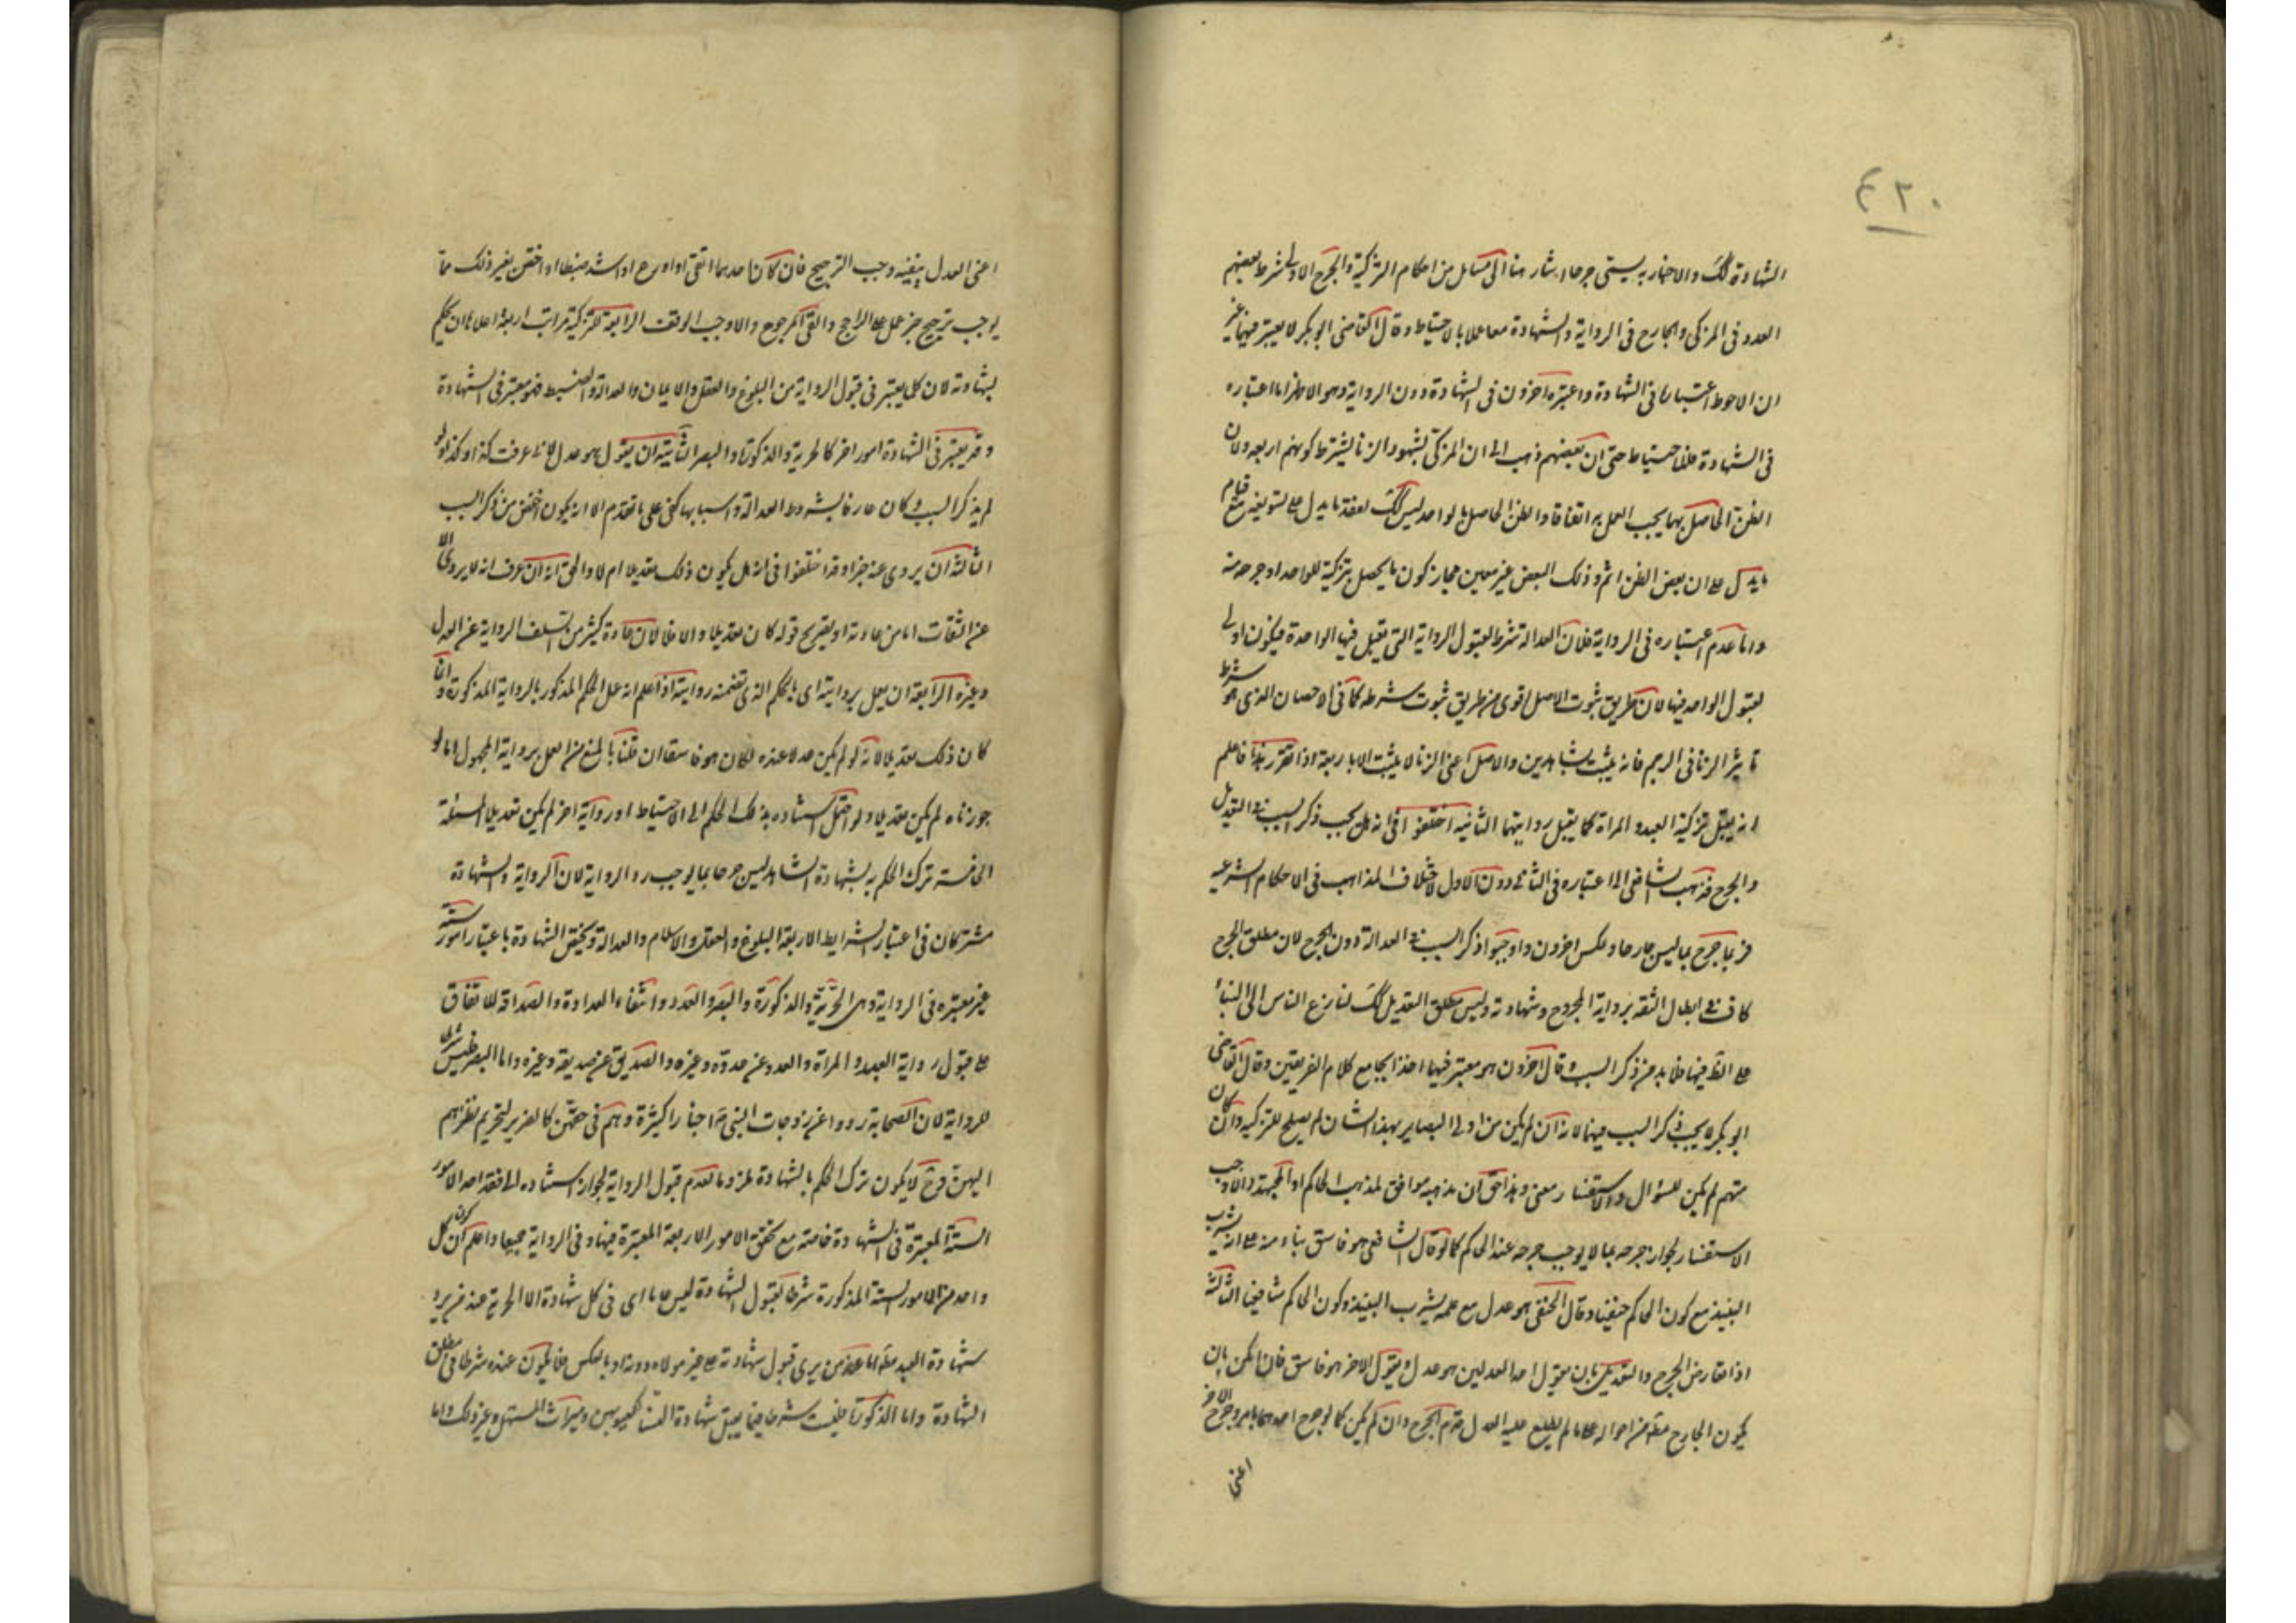 ٤٢٠
الشهادة كك والاخبار به يسمى جرحا واشار هنا الى مسايل من احكام التزكية والجرح الاولى شرط بعضهم
العدد فى المزكى والجارح فى الرواية والشهادة معا عملا بالاحتياط وقال القاضى ابو بكر لا يعتبر فيهما غير
ان الاحوط اعتباره فى الشهادة واعتبره اخرون فى الشهادة دون الرواية وهو الاظهر اما اعتباره
فى الشهادة فللاحتياط حتى ان بعضهم ذهب الى ان المزكى لشهود الزنا يشترط كونهم اربعة ولان
الظن الحاصل بهما يجب العمل به اتفاقا والظن الحاصل بالواحد ليس كك لفقد ما يدل على تسويغه مع قيام
ما يدل على ان بعض الظن اثم وذلك البعض غير معين فجاز كون ما يحصل بتزكية الواحد او جرحه منه
واما عدم اعتباره فى الرواية فلان العدالة شرط لقبول الرواية التى يقبل فيها الواحدة فيكون اولى
بقبول الواحد فيها لان طريق ثبوت الاصل اقوى من طريق ثبوت شرطه كما فى الاحصان الذى هو شرط
تاثير الزنا فى الرجم فانه يثبت بشاهدين والاصل اعنى الزنا لا يثبت الا باربعة اذا تقرر هذا فاعلم
انه يقبل تزكية العبد و المراة كما يقبل روايتهما الثانية اختلفوا فى انه هل يجب ذكر السبب فى التعديل
والجرح فذهب الشافعى الى اعتباره فى الثانى دون الاول لاختلاف المذاهب فى الاحكام الشرعية
فربما جرح بما ليس جارحا وعكس اخرون واوجبوا ذكر السبب فى العدالة دون الجرح لان مطلق الجرح
كاف فى ابطال الثقة برواية المجروح وشهادته وليس مطلق التعديل كك لتسارع الناس الى البناء
على الظ فيها فلا بد من ذكر السبب وقال اخرون هو معتبر فيهما اخذا بجامع كلام الفريقين وقال القاضى
ابو بكر لا يجب ذكر السبب فيهما لانه ان لم يكن من اولى البصاير بهذا الشان لم يصلح للتزكية وان كان
متهم لم يكن للسؤال والاستفسار معنى وهذا حق ان مذهبه موافق لمذهب الحاكم او المجتهد والا وجب
الاستفسار لجواز جرحه بما لا يوجب جرحه عند الحاكم كما لو قال الشافعى هو فاسق بناء منه على انه يشرب
النبيذ مع كون الحاكم حنفيا وقال الحنفى هو عدل مع علمه بشرب النبيذ وكون الحاكم شافعيا الثالثة
اذا تعارض الجرح والتعديل بان يقول احد العدلين هو عدل ويقول الاخر هو فاسق فان امكن بان
يكون الجارح مطلعا من احواله على ما لم يطلع عليه العدل قدم الجرح وان لم يكن كما لو جرح احدهما بامر وجرح الاخر
اعنى
اعنى العدل بنفيه وجب الترجيح فان كان احدهما اتقى او اورع او اشد ضبطا او اختص بغير ذلك مما
يوجب ترجيح خبره عمل على الراجح والقى المرجوح والا وجب الوقف الرابعة للتزكية مراتب اربعة اعلاها ان يحكم
بشهادته لان كلما يعتبر فى قبول الرواية من البلوغ والعقل والايمان والعدالة والضبط فهو معتبر فى الشهادة
وقد يعتبر فى الشهادة امور اخر كالحرية والذكورة والبصر الثانية ان يقول هو عدل لانى عرفت كذا وكذا ولو
لم يذكر السبب وكان عارفا بشروط العدالة واسبابها كفى على ما تقدم الا انه يكون اخفض من ذكر السبب
الثالثة ان يروى عنه خبرا وقد اختلفوا فى انه هل يكون ذلك تعديلا ام لا والحق انه ان عرف انه لا يروى الا
عن الثقات اما من عادته او بصريح قوله كان تعديلا والا فلا لان عادة كثير من السلف الرواية عن العدل
وغيره الرابعة ان يعمل بروايته اى بالحكم الذى تضمنه روايته اذا علم انه عمل الحكم المذكور بالرواية المذكورة وانما
كان ذلك تعديلا لانه لو لم يكن عدلا عنده لكان هو فاسقا ان قلنا بالمنع من العمل برواية المجهول اما لو
جوزناه لم يكن تعديلا ولو احتمل استناده بذلك الحكم الى الاحتياط او رواية اخر لم يكن تعديلا المسئلة
الخامسة ترك الحكم بشهادة الشاهد ليس جرحا بما يوجب رد الرواية لان الرواية والشهادة
مشتركان فى اعتبار الشرايط الاربعة البلوغ والعقل والاسلام والعدالة ويختص الشهادة باعتبار امور ستة
غير معتبره فى الرواية وهى الحرية والذكورة والبصر والعدد وانتفاء العداوة والصداقة للاتفاق
على قبول رواية العبد و المراة والعدو عن عدوه وغيره والصديق عن صديقه وغيره واما البصر فليس شرطا
للرواية لان الصحابة رووا عن زوجات النبى ص اخبارا كثيرة وهم فى حقهن كالضرير لتحريم نظرهم
اليهن وح لا يكون ترك الحكم بالشهادة ملزوما لعدم قبول الرواية لجواز استناده الى فقد احد الامور
الستة المعتبرة فى الشهادة خاصة مع تحقق الامور الاربعة المعتبرة فيها وفى الرواية جميعا واعلم ان كون كل
واحد من الامور الستة المذكورة شرطا لقبول الشهادة ليس عاما اى فى كل شهادة الا الحرية عند من يرد
شهادة العبد مطلقا اما عند من يرى قبول شهادته على غير مولاه دونه او بالعكس فلا يكون عنده شرطا فى مطلق
الشهادة واما الذكورة فليست شرطا فيما يقبل شهادة النساء كعيوبهن وميراث المستهل وغير ذلك واما